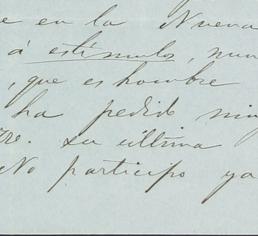 e en la Nueva
á estímulos, nun
, que es hombre
ha pedido nin
re. su última
No participo ya